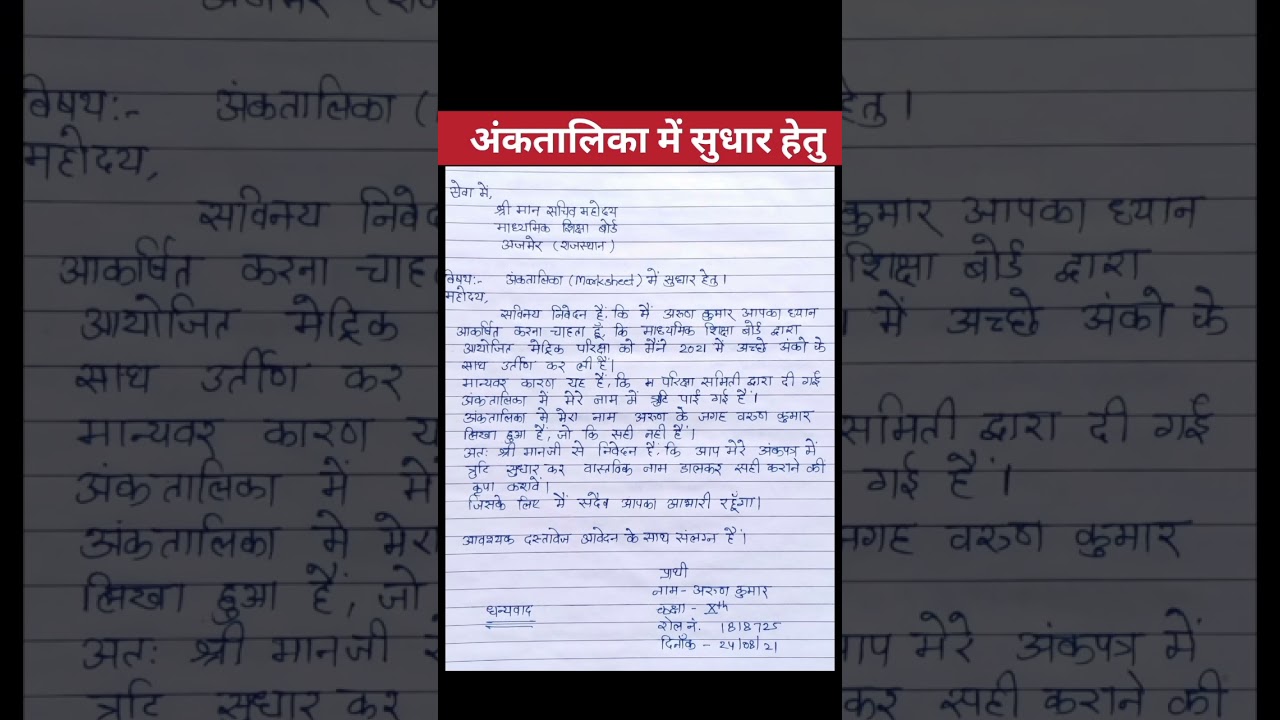 अंकतालिका में सुधार हेतु
सेवा में,
श्री मान सचिव महोदय
माध्यमिक शिक्षा बोर्ड
अजमेर (राजस्थान)
विषय:- अंकतालिका (Marksheet) में सुधार हेतु।
महोदय,
सविनय निवेदन हैं, कि मैं अरुण कुमार आपका ध्यान
आकर्षित करना चाहता हूँ, कि माध्यमिक शिक्षा बोर्ड द्वारा
आयोजित मेट्रिक परिक्षा को मैंने 2021 में अच्छे अंको के
साथ उर्तीण कर ली हैं।
मान्यवर कारण यह हैं, कि म परिक्षा समिती द्वारा दी गई
अंकतालिका में मेरे नाम में त्रुटि पाई गई हैं।
अंकतालिका मे मेरा नाम अरुण के जगह वरुण कुमार
लिखा हुआ हैं, जो कि सही नही हैं।
अतः श्री मानजी से निवेदन हैं, कि आप मेरे अंकपत्र में
त्रुटि सुधार कर वास्तविक नाम डालकर सही कराने की
कृपा करावें।
जिसके लिए मैं सदैव आपका आभारी रहूँगा।
आवश्यक दस्तावेज आवेदन के साथ संलग्न हैं।
प्राथी
नाम - अरुण कुमार
धन्यवाद
कक्षा - Xth
रोल नं. 1818725
दिनाँक - 24/08/21